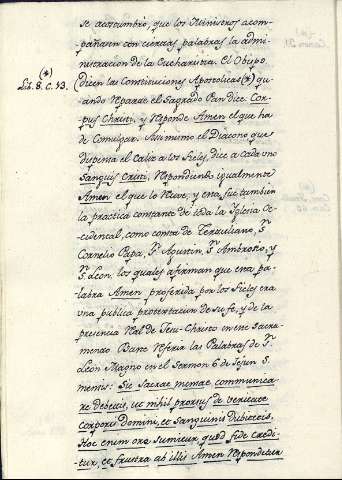 se acostumbró, que los Ministros acom-
pañasen con ciertas palabras la admi-
nistracion de la Eucharistia. El Obispo
(*)
Lib. 8. C. 13.
dicen las Constituciones Apostolicas (*) qu-
ando reparte el Sagrado Pan dice Cor-
pus Christi, y responde Amen el que ha
de Comulgar. Asimismo el Diacono que
dispensa el Caliz a los fieles, dice a cada uno
Sanguis Cristi, respondiendo igualmente
Amen el que lo recive, y esta fue tambien
la practica constante de toda la Iglesia Oc-
cidental, como consta de Tertuliano, Sn.
Cornelio Papa, Sn. Agustin, Sn. Ambrosio, y
Sn. Leon, los quales afirman que esta pa-
labra Amen proferida por los fieles era
una publica protestacion de su fe, y de la
presencia real de Jesu-Christo en este Sacra-
mento. Baste referir las Palabras de Sn.
Leon Magno en el Sermon 6 de Jejun. 7.
mensis: Sic sacrae mensae communica-
re debetis, ut nihil prorsus de veritate
corporis Domini, et sanguinis dubitetis,
Hoc enim ore sumitur, quod fide credi-
tur, et frustra ab illis Amen respondetur